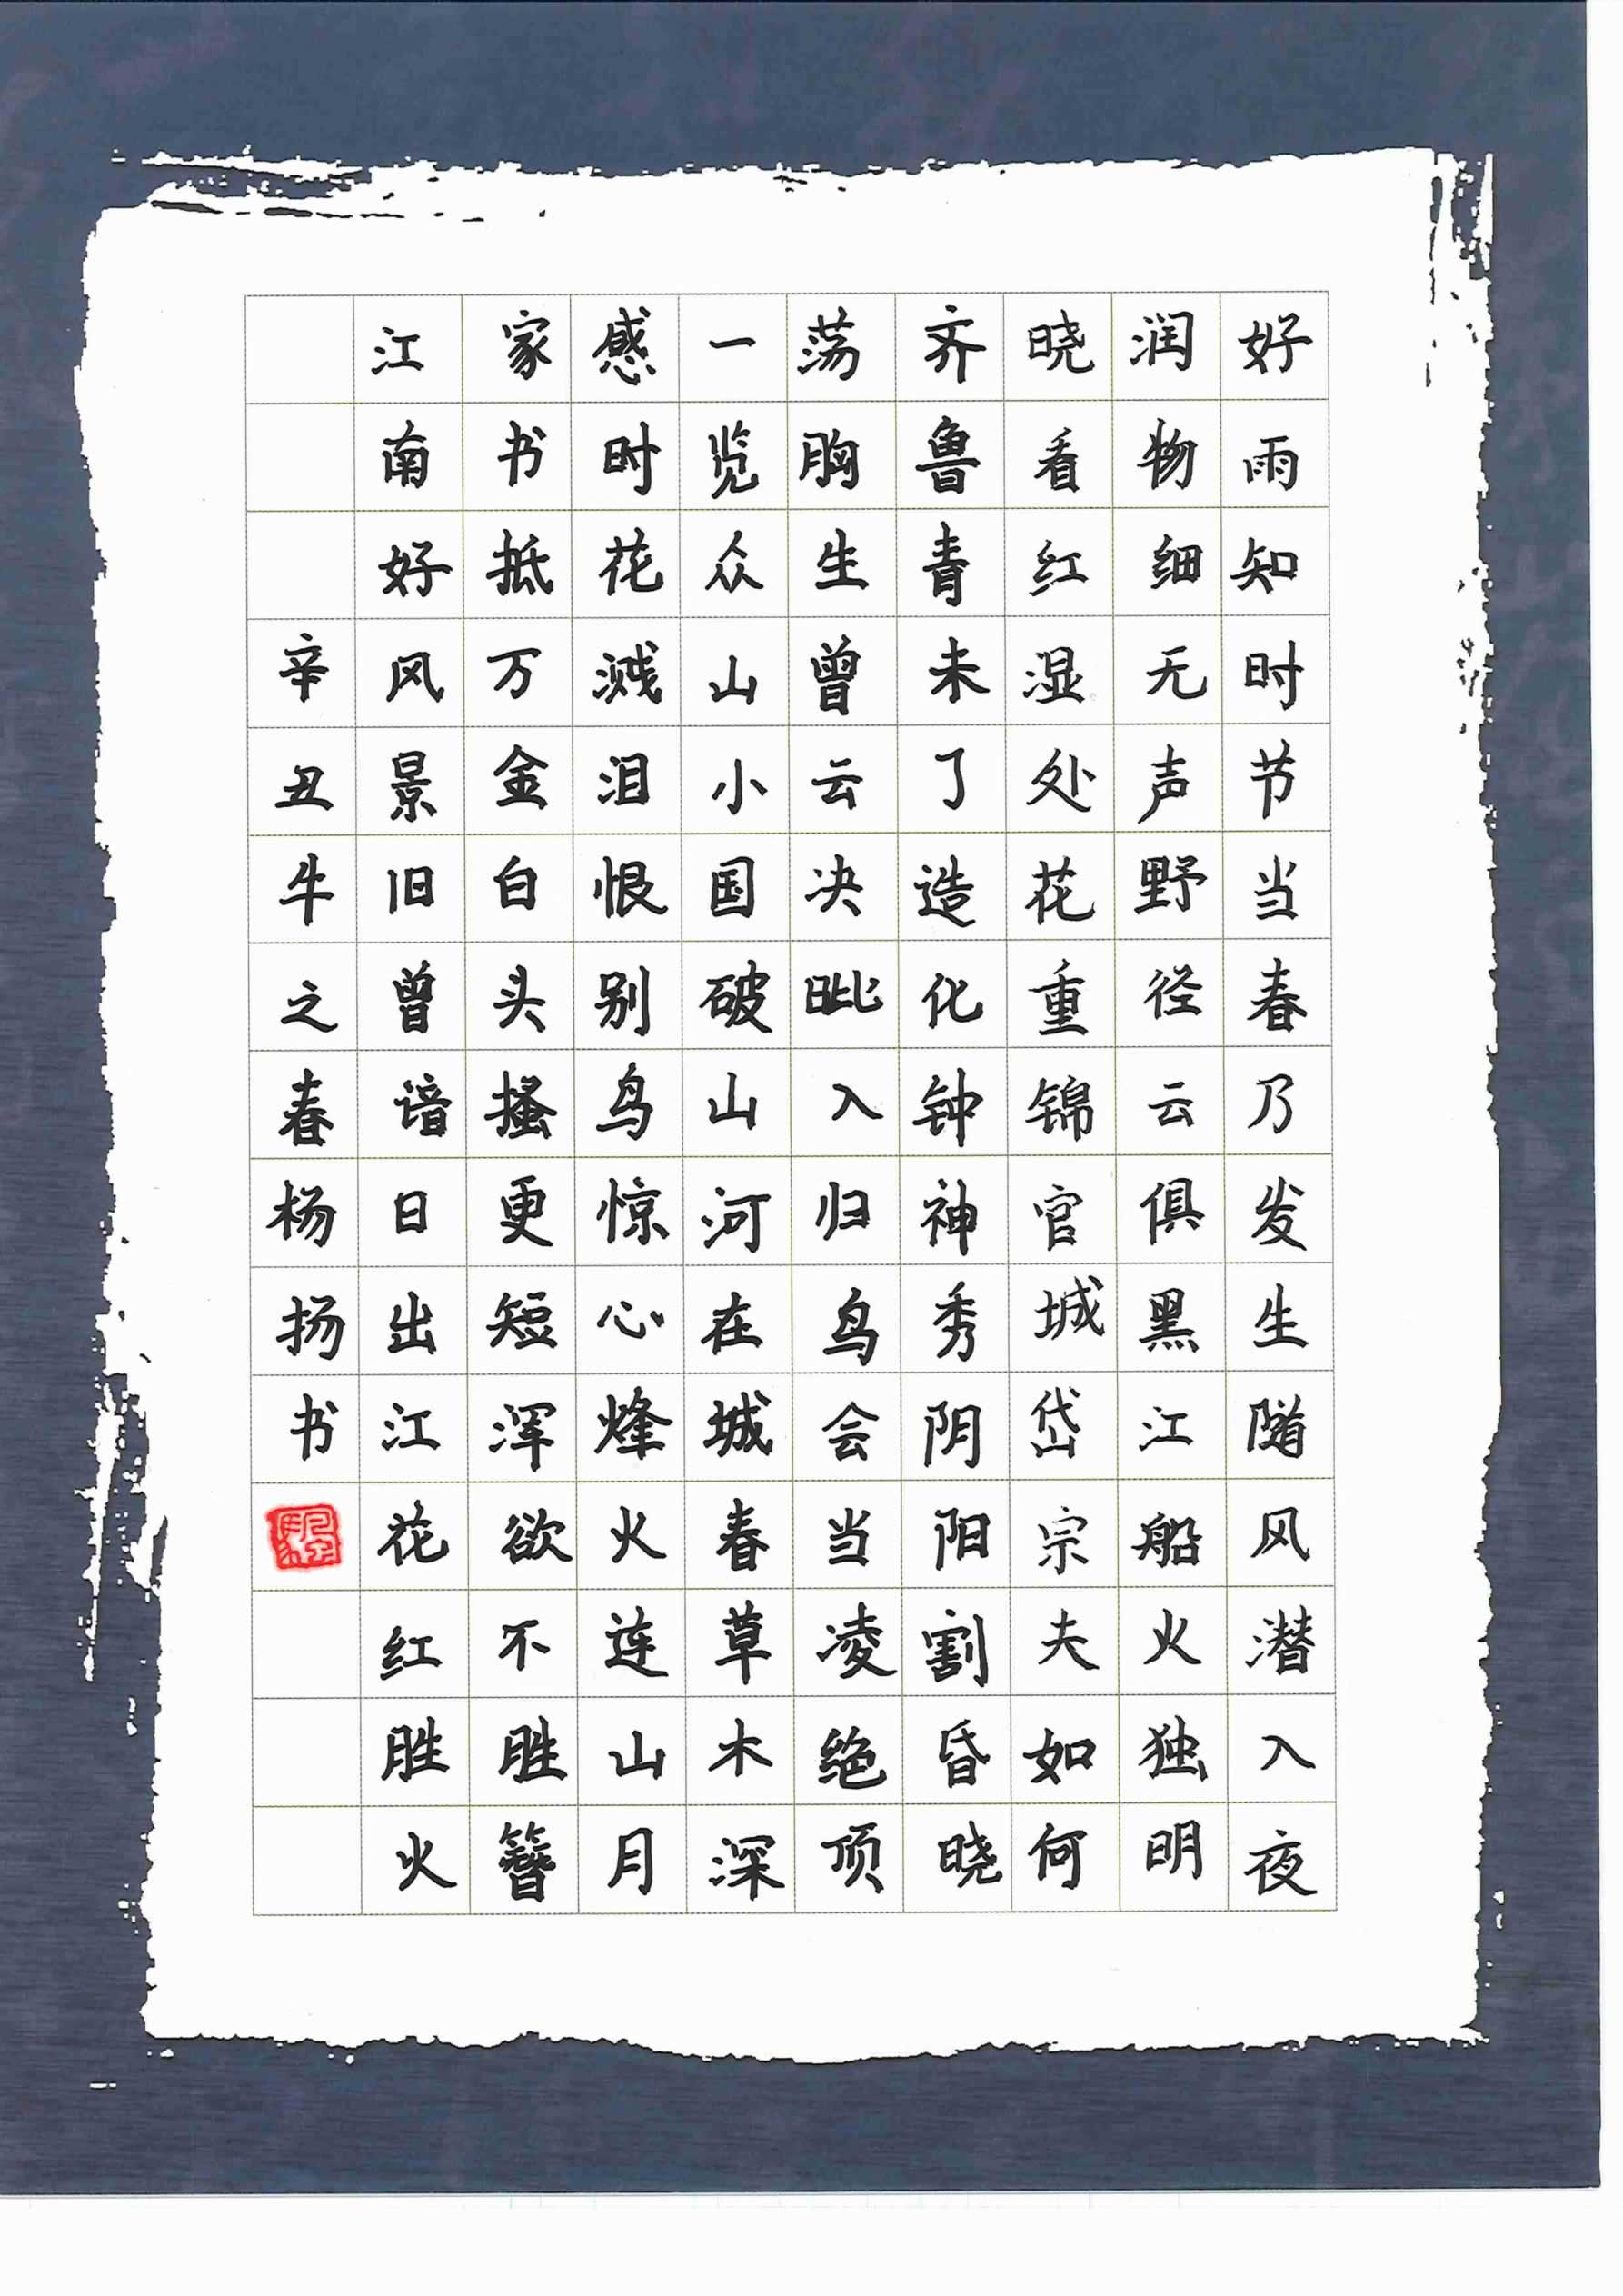 好雨知时节当春乃发生随风潜入夜
润物细无声野径云俱黑江船火独明
晓看红湿处花重锦官城岱宗夫如何
齐鲁青未了造化钟神秀阴阳割昏晓
荡胸生曾云决眦入归鸟会当凌绝顶
一览众山小国破山河在城春草木深
感时花溅泪恨别鸟惊心烽火连山月
家书抵万金白头搔更短浑欲不胜簪
江南好风景旧曾谙日出江花红胜火
辛丑牛之春杨扬书